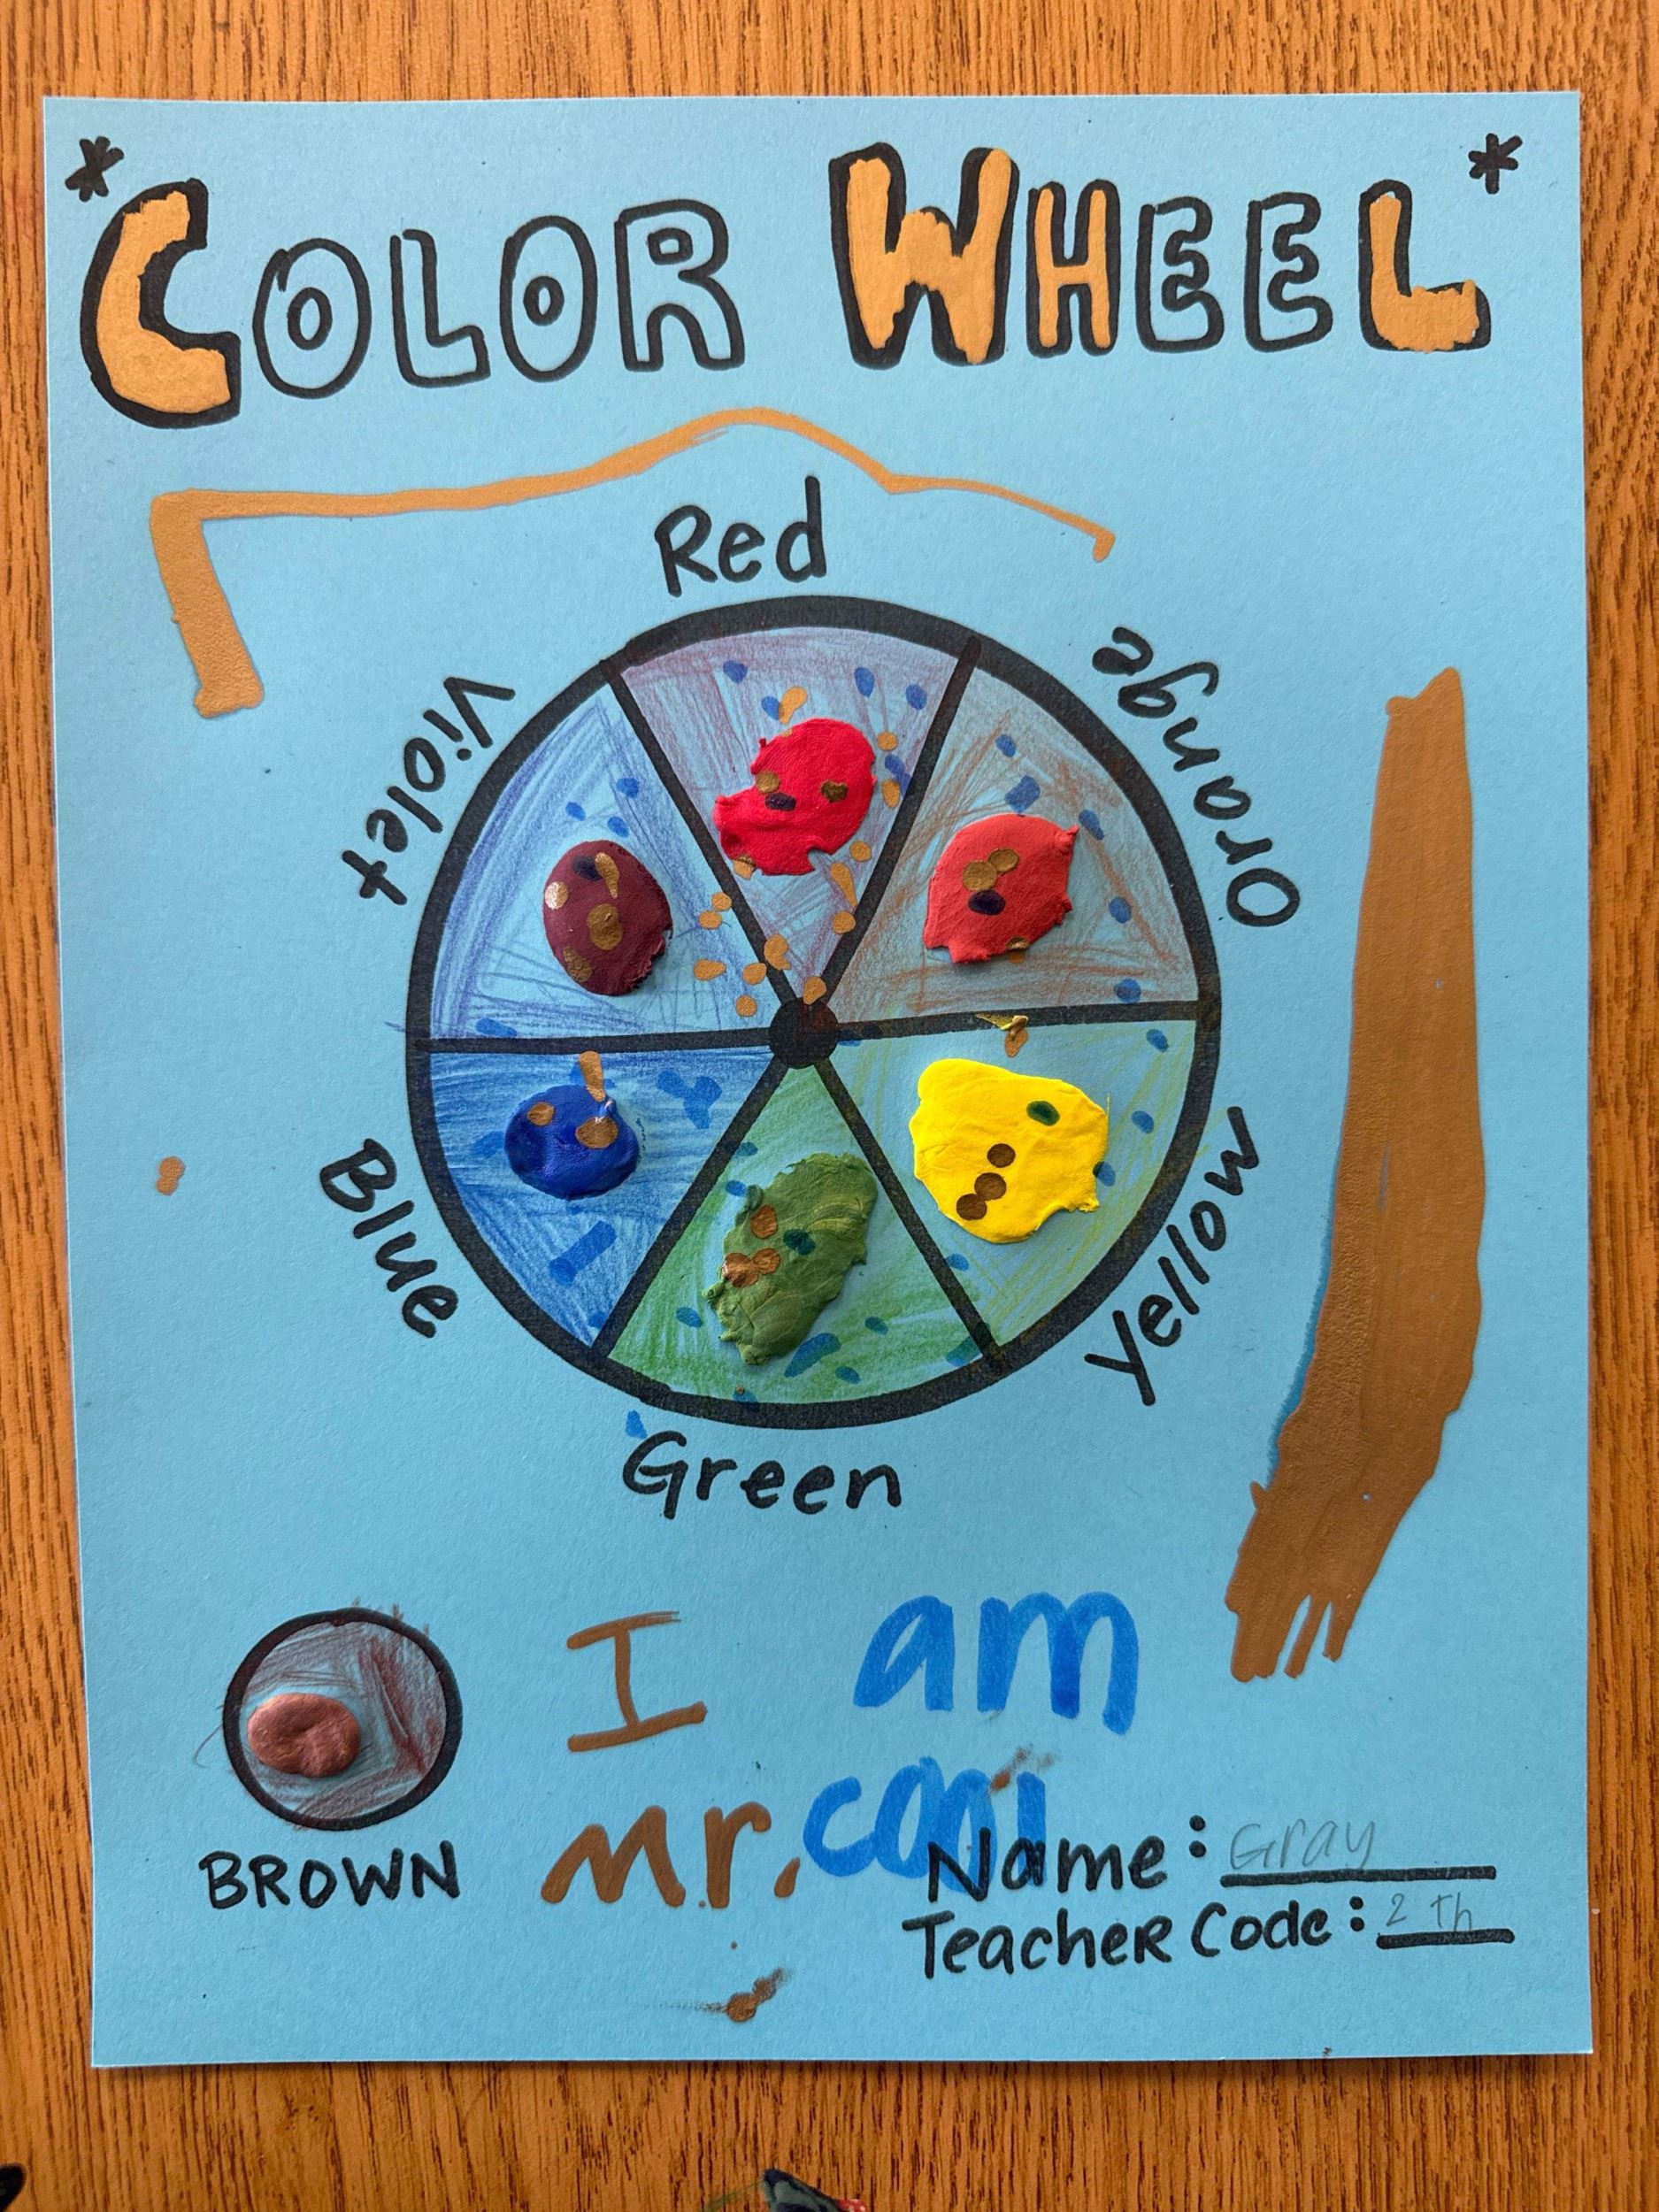 *COLOR WHEEL*
Red
Orange
Violet
Yellow
Blue
Green
I am
mr. cool
BROWN
Name: Gray
Teacher Code: 2 Th